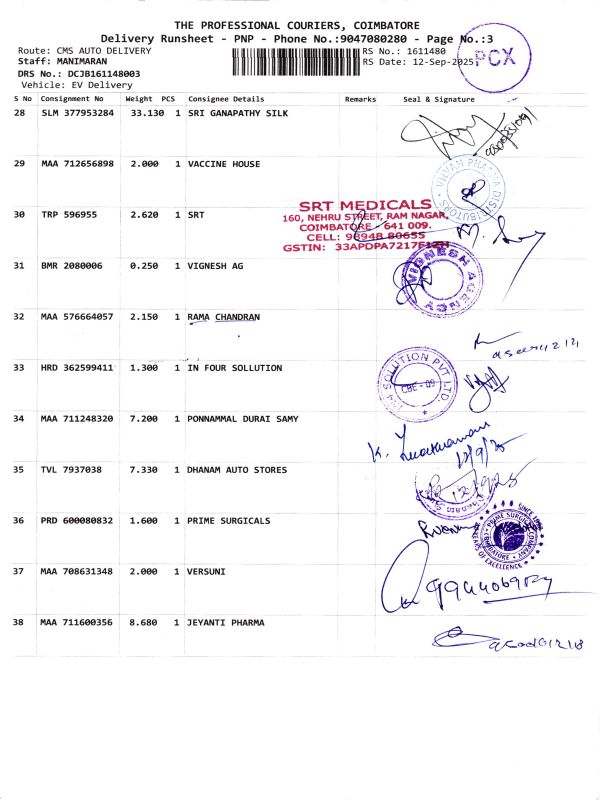 THE PROFESSIONAL COURIERS, COIMBATORE
Delivery Runsheet - PNP - Phone No.:9047080280 - Page No.:3
Route: CMS AUTO DELIVERY
RS No.: 1611480
Staff: MANIMARAN
RS Date: 12-Sep-2025
PCX
DRS No.: DCJB161148003
Vehicle: EV Delivery
S No Consignment No Weight PCS Consignee Details Remarks Seal & Signature
28 SLM 377953284 33.130 1 SRI GANAPATHY SILK
29 MAA 712656898 2.000 1 VACCINE HOUSE
30 TRP 596955 2.620 1 SRT
SRT MEDICALS
160, NEHRU STREET, RAM NAGAR,
COIMBATORE - 641 009.
CELL: 98948 80655
GSTIN: 33APDPA7217F1ZH
31 BMR 2080006 0.250 1 VIGNESH AG
32 MAA 576664057 2.150 1 RAMA CHANDRAN
33 HRD 362599411 1.300 1 IN FOUR SOLLUTION
SOLUTION PVT LTD.
CBE - 09
34 MAA 711248320 7.200 1 PONNAMMAL DURAI SAMY
12/9/25
35 TVL 7937038 7.330 1 DHANAM AUTO STORES
36 PRD 600080832 1.600 1 PRIME SURGICALS
37 MAA 708631348 2.000 1 VERSUNI
38 MAA 711600356 8.680 1 JEYANTI PHARMA